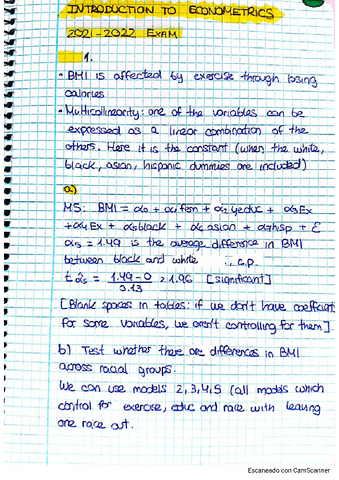 INTRODUCTION TO ECONOMETRICS
2021-2022 EXAM
1.
• BMI is affected by exercise through losing
calories
• Multicollinearity: one of the variables can be
expressed as a linear combination of the
others. Here it is the constant (when the white,
black, asian, hispanic dummies are included)
a)
M5: BMI = α0 + α1 fem + α2 yeduc + α3Ex
+α4 Ex + α5black + α6 asian + α7hsp + ε
α5 = 1.49 is the average difference in BMI
between black and white c.p.
t α̂5 = 1.49-0 / 3.13 > 1.96 [significant]
[Blank spaces in tables: if we don't have coefficient
for some variables, we aren't controlling for them]
b) Test whether there are differences in BMI
across racial groups.
We can use models 2,3,4,5 (all models which
control for exercise, educ and race with leaving
one race out.
Escaneado con CamScanner